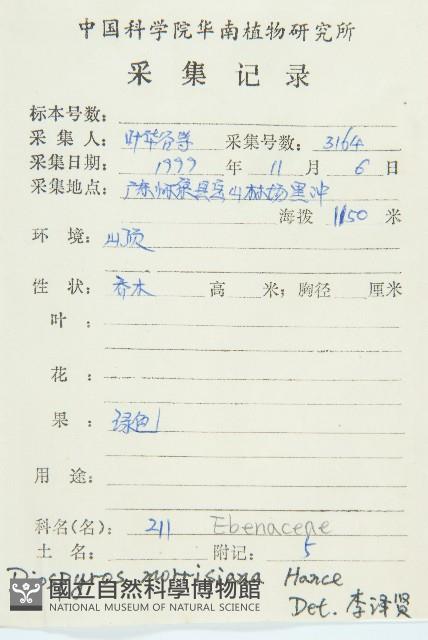 中国科学院华南植物研究所
采集记录
标本号数:
采集人: 叶华谷等 采集号数: 3164
采集日期: 1999 年 11 月 6 日
采集地点: 广东 县 山林场黑冲
海拨 1150 米
环境: 山顶
性状: 乔木 高 米; 胸径 厘米
叶:
花:
果: 绿色
用途:
科名(名): 211 Ebenaceae
土名: 附记: 5
Diospyros morrisiana Hance
國立自然科學博物館
NATIONAL MUSEUM OF NATURAL SCIENCE
Det. 李泽贤